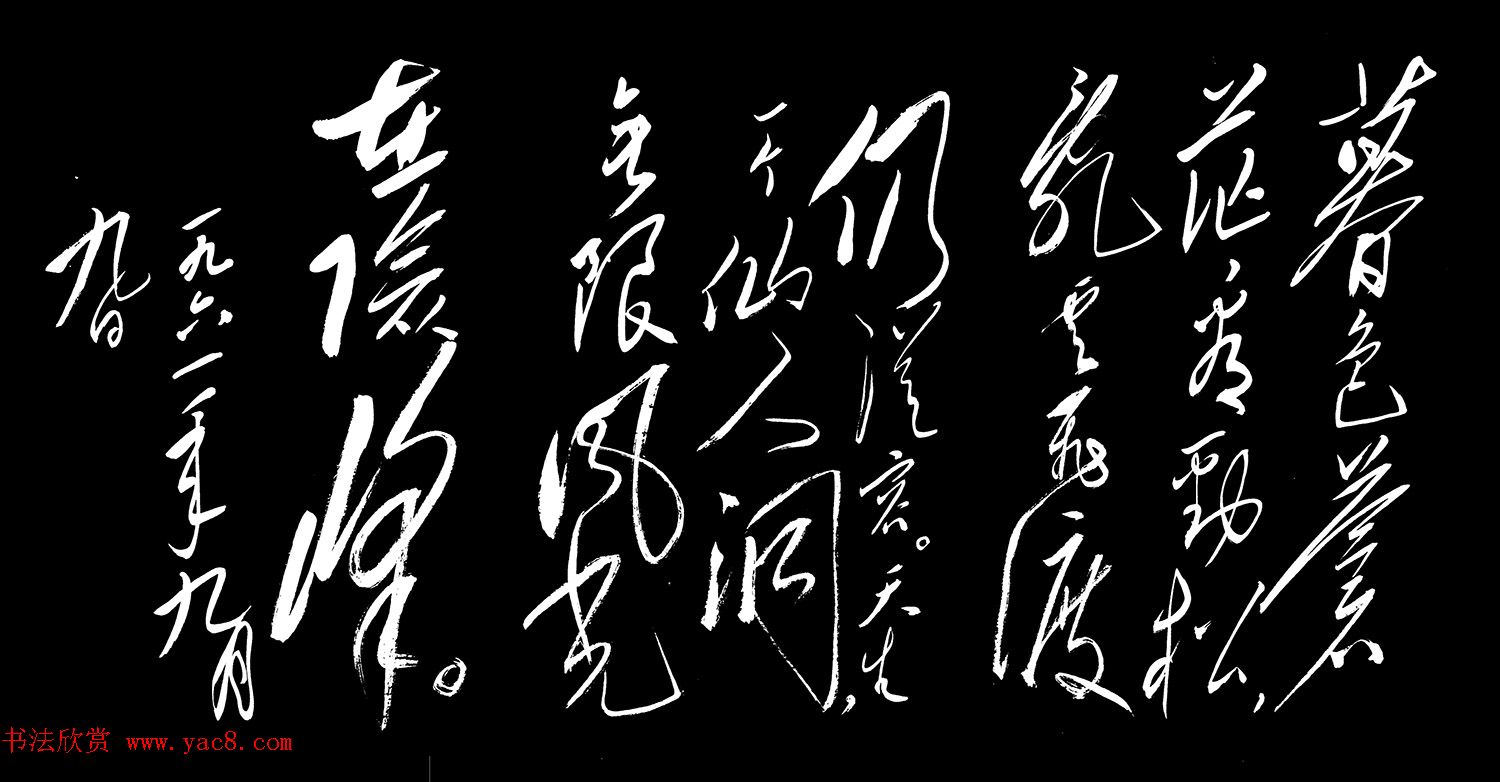 暮色蒼
茫看勁松,
亂云飛渡
仍從容。天生
一个仙人洞,
無限風光
在險峰。
一九六一年九月
九日
书法欣赏 www.yac8.com